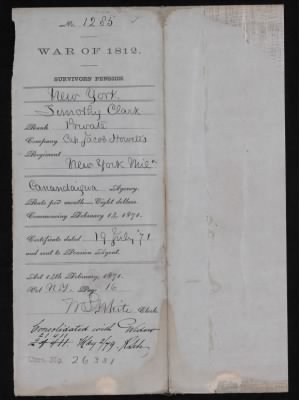 No. 1285
WAR OF 1812.
SURVIVORS' PENSION
New York
Timothy Clark
Rank Private
Company Cap Jacob Howell's
Regiment
New York Mil"
Canandaigua Agency.
Rate per month—Eight dollars.
Commencing February 14, 1871.
Certificate dated 19 July '71
and sent to Pension Agent.
Act 14th February, 1871.
Vol N.Y. Page 16
White Clerk
Consolidated with Widow
21411 May 2/79
26331